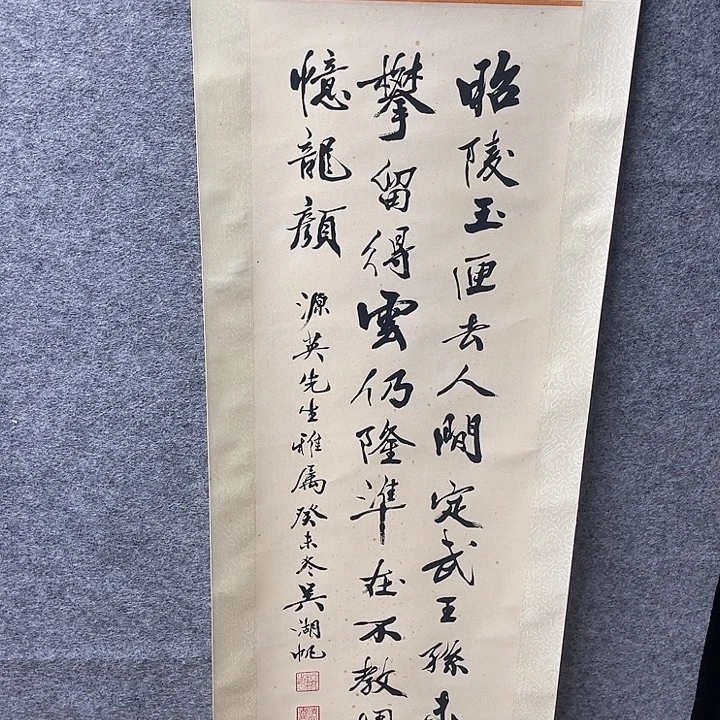 昭陵玉匣去人間定武王孫未
攀留得雲仍隆準在不教
憶龍顏
源英先生雅属癸未冬吳湖帆